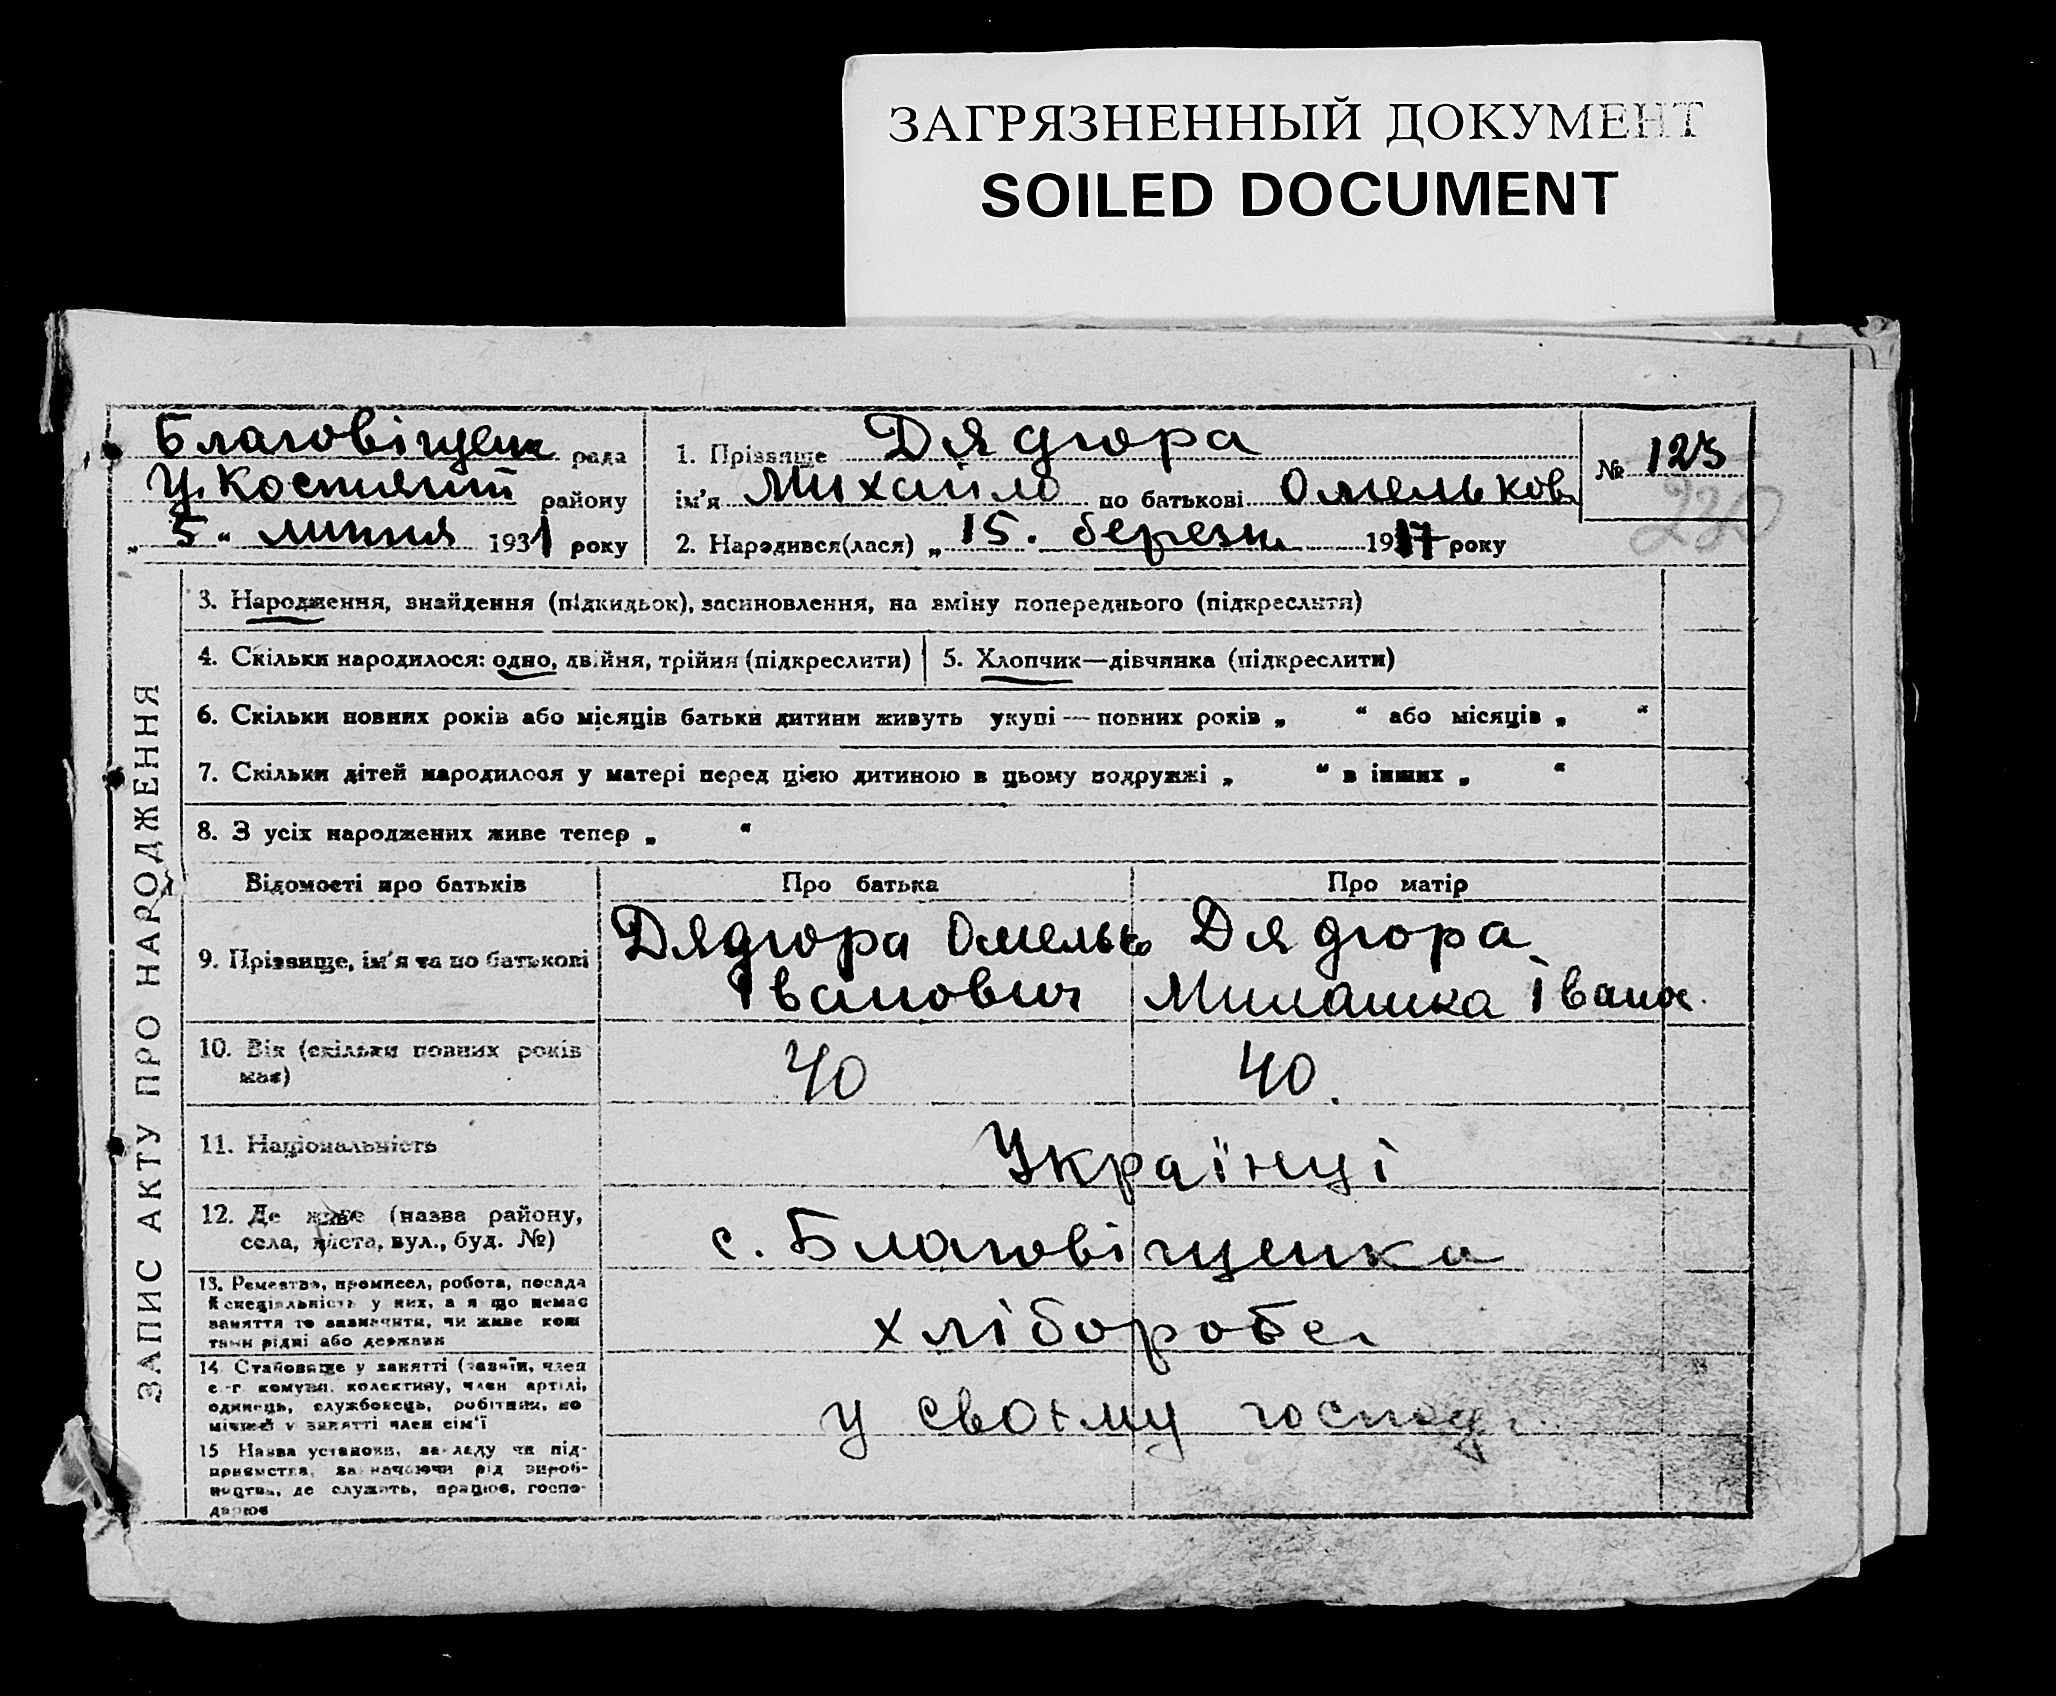 ЗАГРЯЗНЕННЫЙ ДОКУМЕНТ
SOILED DOCUMENT
Благовіщен рада
району
„ 5 “ липня 1931 року
1. Прізвище Дядюра
ім'я Михайло по батькові Омельков
2. Народився(лася) „ 15. березн 1917 року
№ 123
230
ЗАПИС АКТУ ПРО НАРОДЖЕННЯ
3. Народження, знайдення (підкидьок), засиновлення, на зміну попереднього (підкреслити)
4. Скільки народилося: одно, двійня, трійня (підкреслити)
5. Хлопчик—дівчинка (підкреслити)
6. Скільки повних років або місяців батьки дитини живуть укупі — повних років „ “ або місяців „ “
7. Скільки дітей народилося у матері перед цією дитиною в цьому подружжі „ “ в інших „ “
8. З усіх народжених живе тепер „ “
Відомості про батьків
Про батька
Про матір
9. Прізвище, ім'я та по батькові
Дядюра Омелько
Іванович
Дядюра
Іванов.
10. Вік (скільки повних років
має)
40
40.
11. Національність
Українці
12. Де живе (назва району,
села, міста, вул., буд. №)
с. Благовіщенка
13. Ремество, промисел, робота, посада
й спеціальність у них, а якщо немає
заняття то зазначити, чи живе кош
тами рідні або держави
хлібороби
14. Становище у занятті (хазяїн, член
с.-г. комуни, колективу, член артілі,
одинець, службовець, робітник, по
мічний у занятті член сім'ї
у своєму господ
15 Назва установи, закладу чи під-
приємства, зазначаючи рід вироб-
ництва, де служить, працює, госпо-
дарює